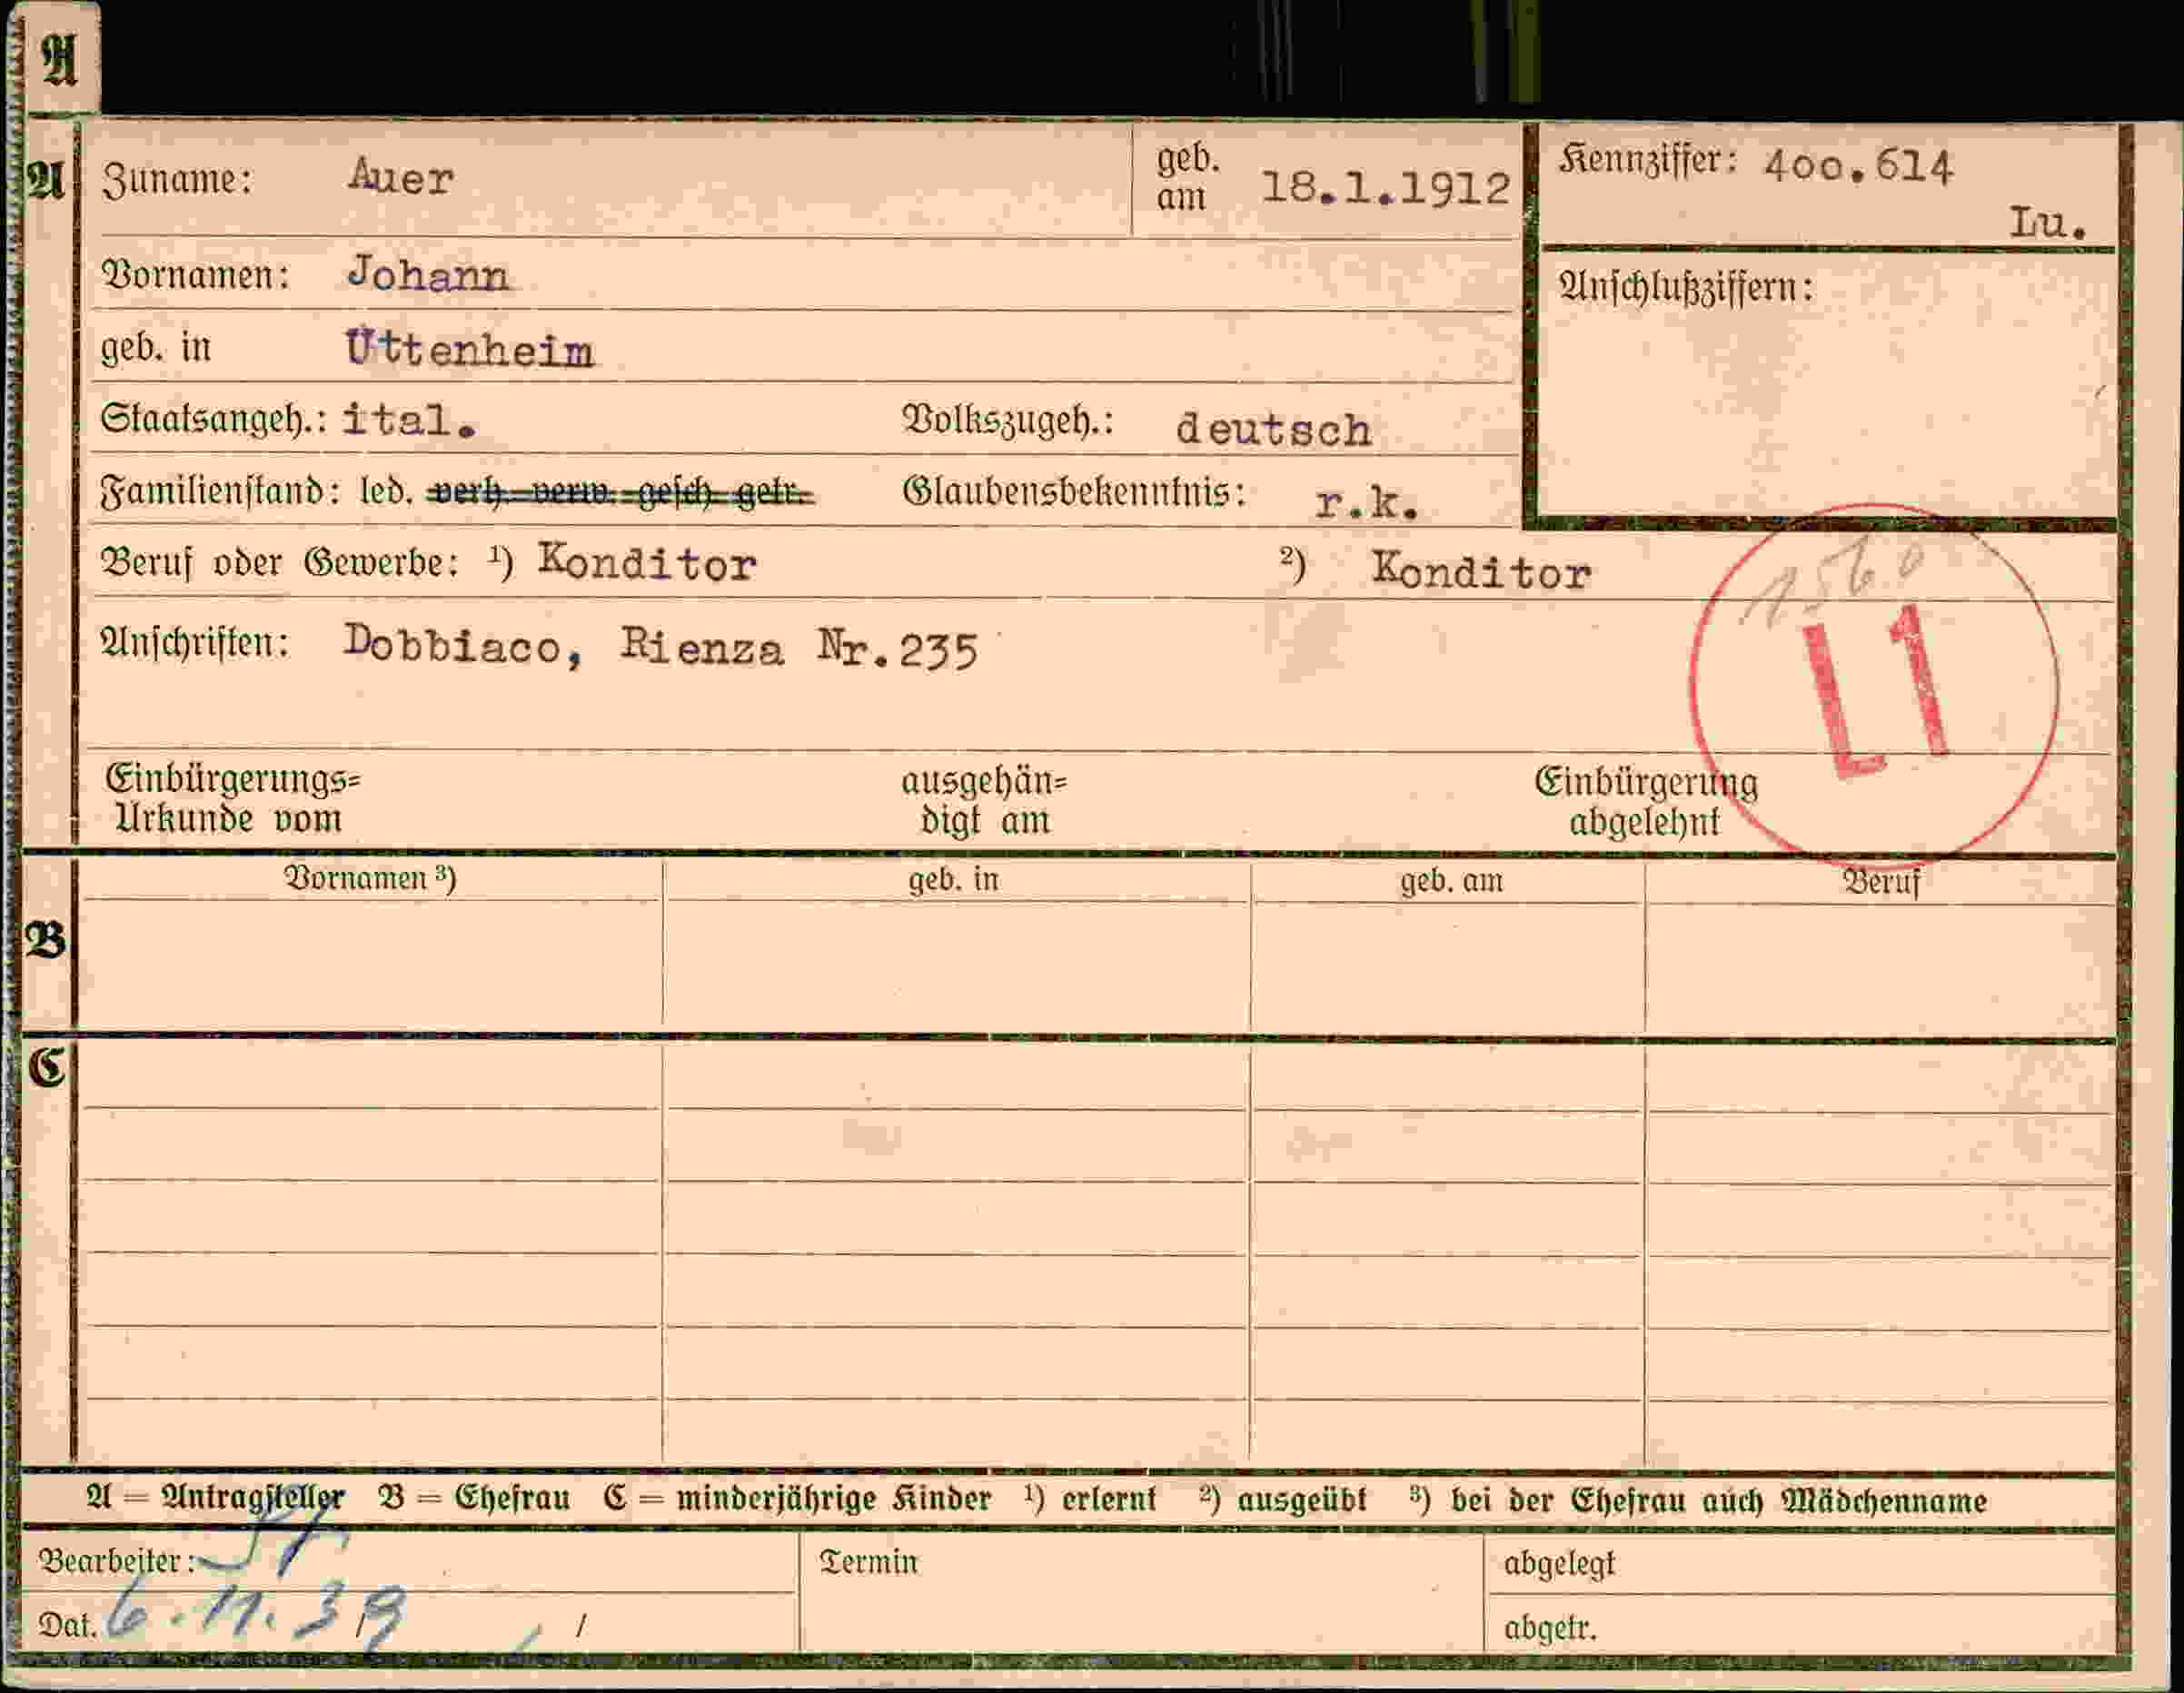 A
A Zuname: Auer geb. am 18.1.1912 Kennziffer: 400.614
Lu.
Vornamen: Johann Anschlußziffern:
geb. in Uttenheim
Staatsangeh.: ital. Volkszugeh.: deutsch
Familienstand: led. verh. verw. gesch. getr. Glaubensbekenntnis: r.k.
Beruf oder Gewerbe: ¹) Konditor ²) Konditor
1560
Anschriften: Dobbiaco, Rienza Nr.235
L1
Einbürgerungs= ausgehän= Einbürgerung
Urkunde vom digt am abgelehnt
Vornamen ³) geb. in geb. am Beruf
B
C
A = Antragsteller B = Ehefrau C = minderjährige Kinder ¹) erlernt ²) ausgeübt ³) bei der Ehefrau auch Mädchenname
Bearbeiter: Termin abgelegt
Dat. 6.11.39 / abgetr.